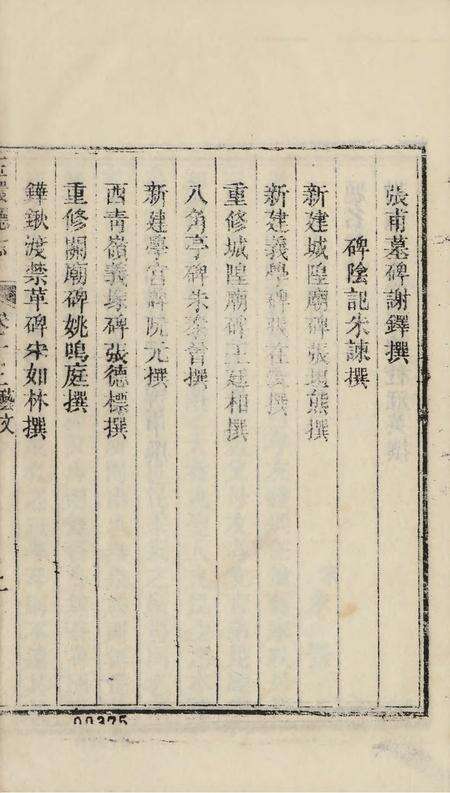 張甫墓碑謝鐸撰
碑陰記朱諫撰
新建城隍廟碑張坦熊撰
新建義學碑張在浚撰
重修城隍廟碑王廷相撰
八角亭碑朱撰
新建學宮碑阮元撰
西青嶺義塚碑張德標撰
重修關廟碑姚鳴庭撰
鏵鍬渡禁革碑宋如林撰
卷十二藝文
00375